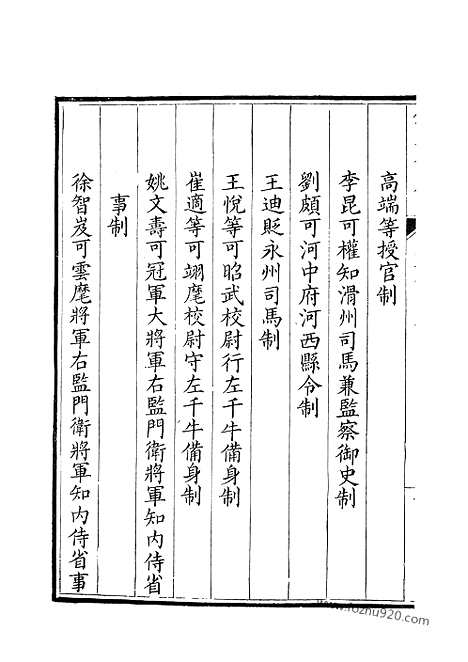 高端等授官制
李昆可權知滑州司馬兼監察御史制
劉頗可河中府河西縣令制
王迪貶永州司馬制
王悅等可昭武校尉行左千牛備身制
崔適等可翊麾校尉守左千牛備身制
姚文壽可冠軍大將軍右監門衛將軍知內侍省
事制
徐智岌可雲麾將軍右監門衛將軍知內侍省事
www.fozhu920.com